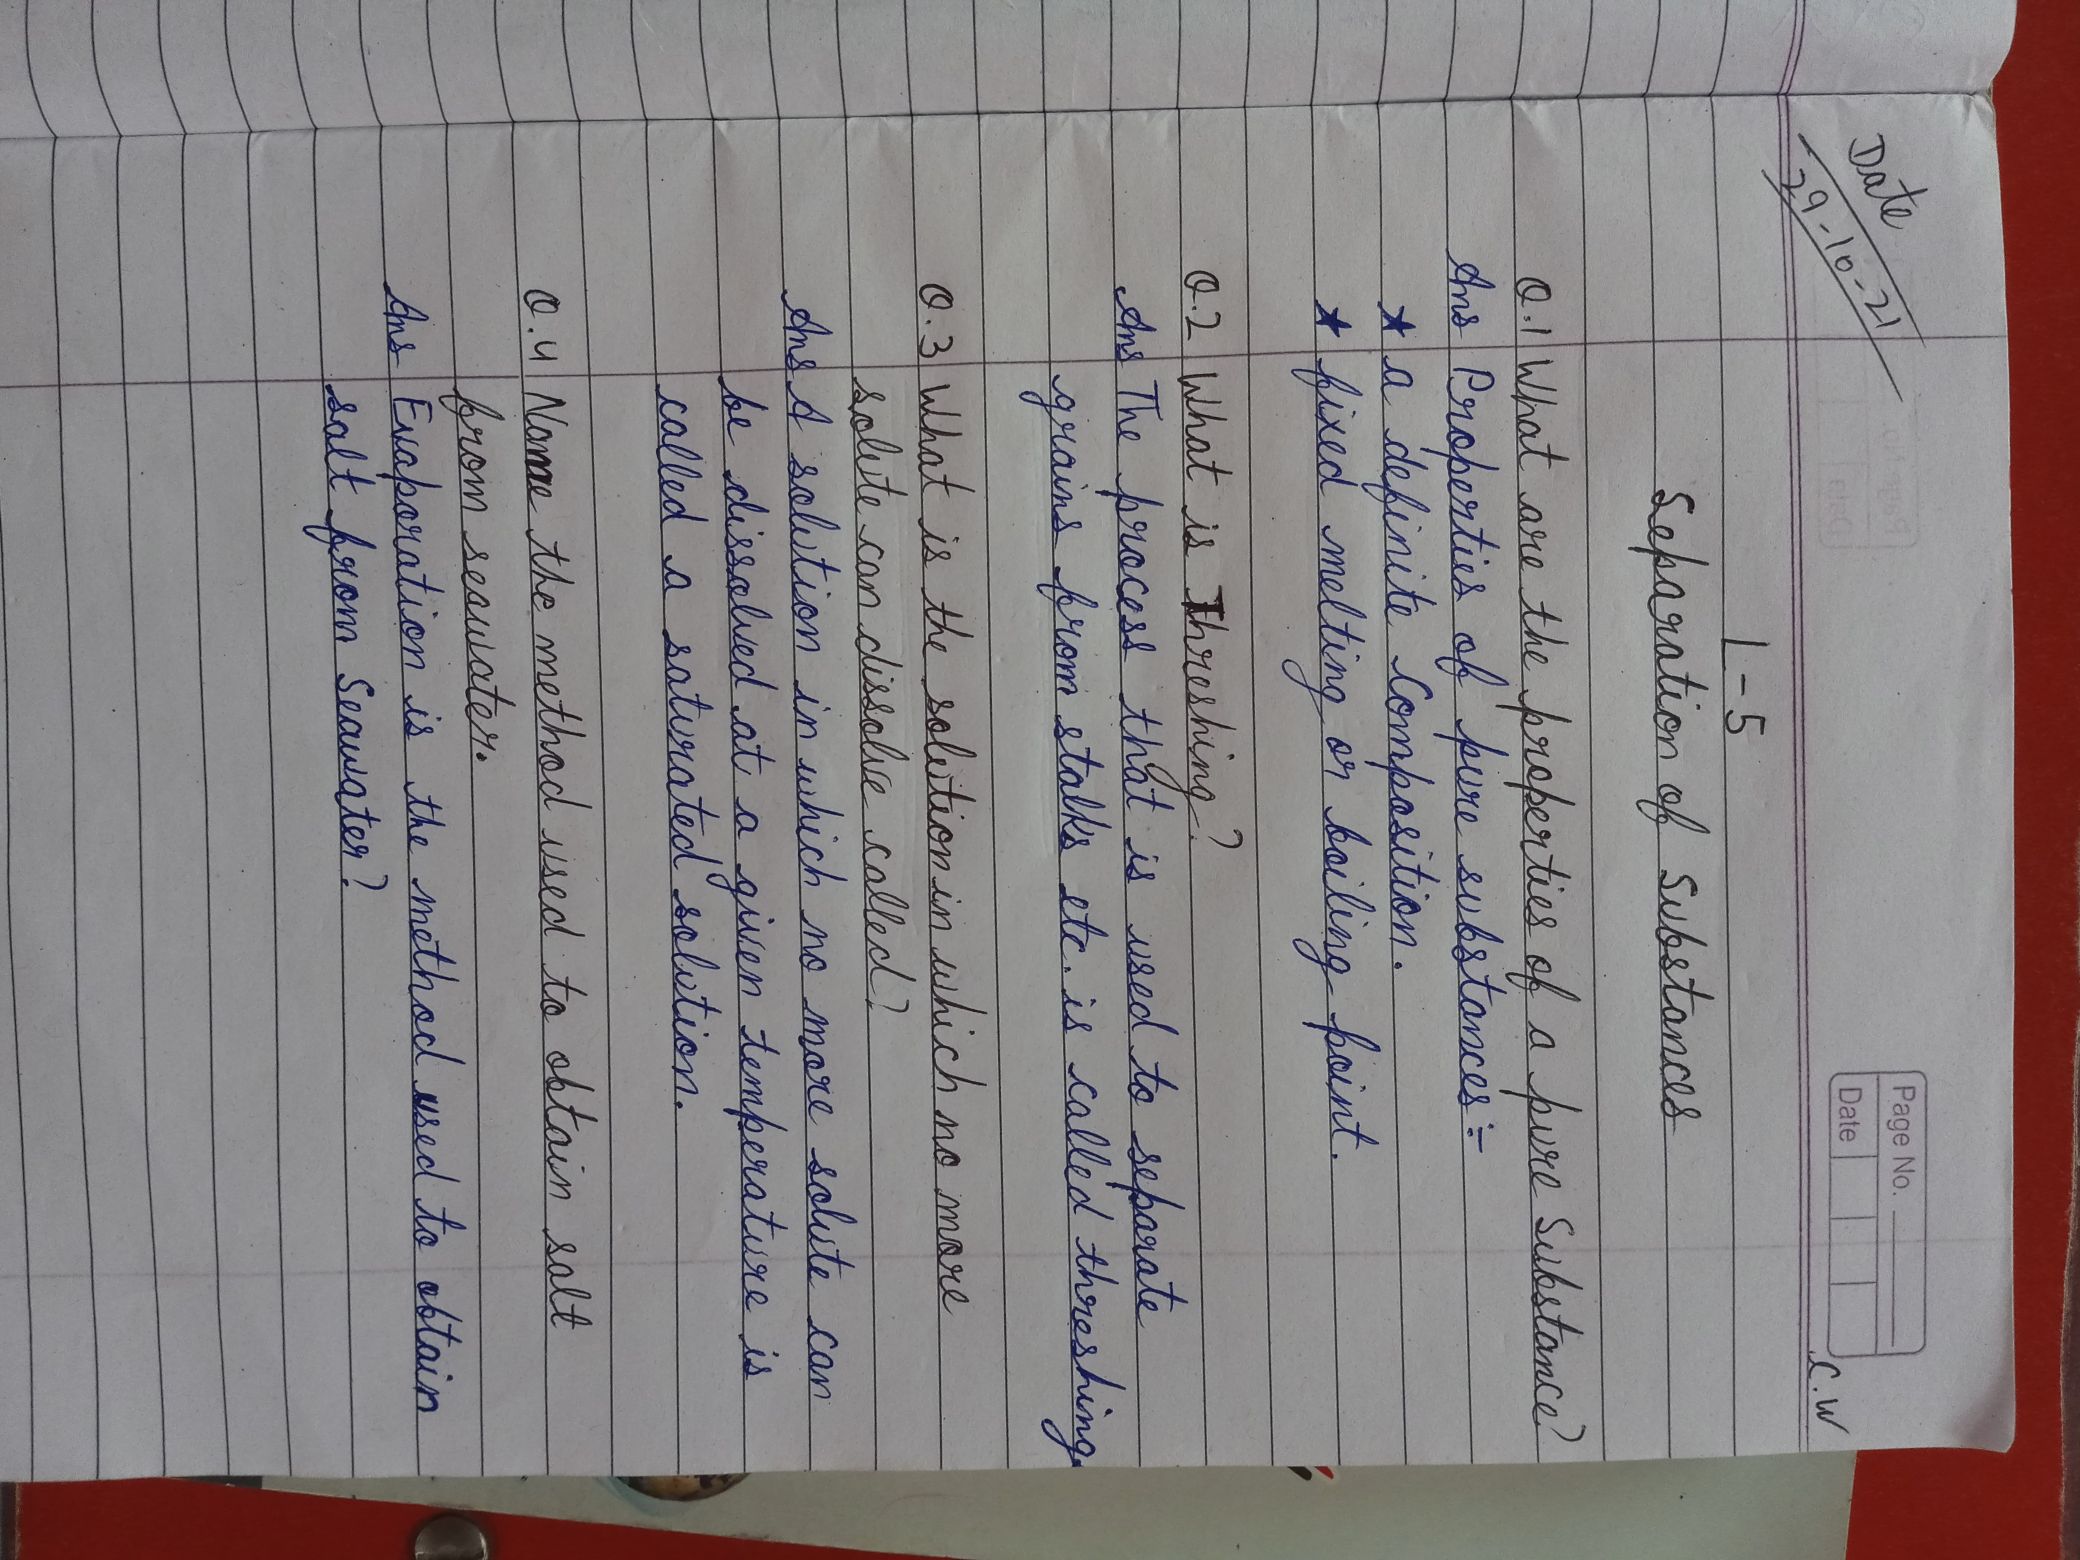 Date
29-10-21
Page No.
Date
C.W
L-5
Separation of Substances
Q.1 What are the properties of a pure Substance?
Ans Properties of pure substances:-
★ a definite Composition.
★ fixed melting or boiling point.
Q.2 What is Threshing?
Ans The process that is used to separate
grains from stalks etc. is called threshing.
Q.3 What is the solution in which no more
solute can dissolve called?
Ans A solution in which no more solute can
be dissolved at a given temperature is
called a saturated solution.
Q.4 Name the method used to obtain salt
from seawater.
Ans Evaporation is the method used to obtain
salt from Seawater?